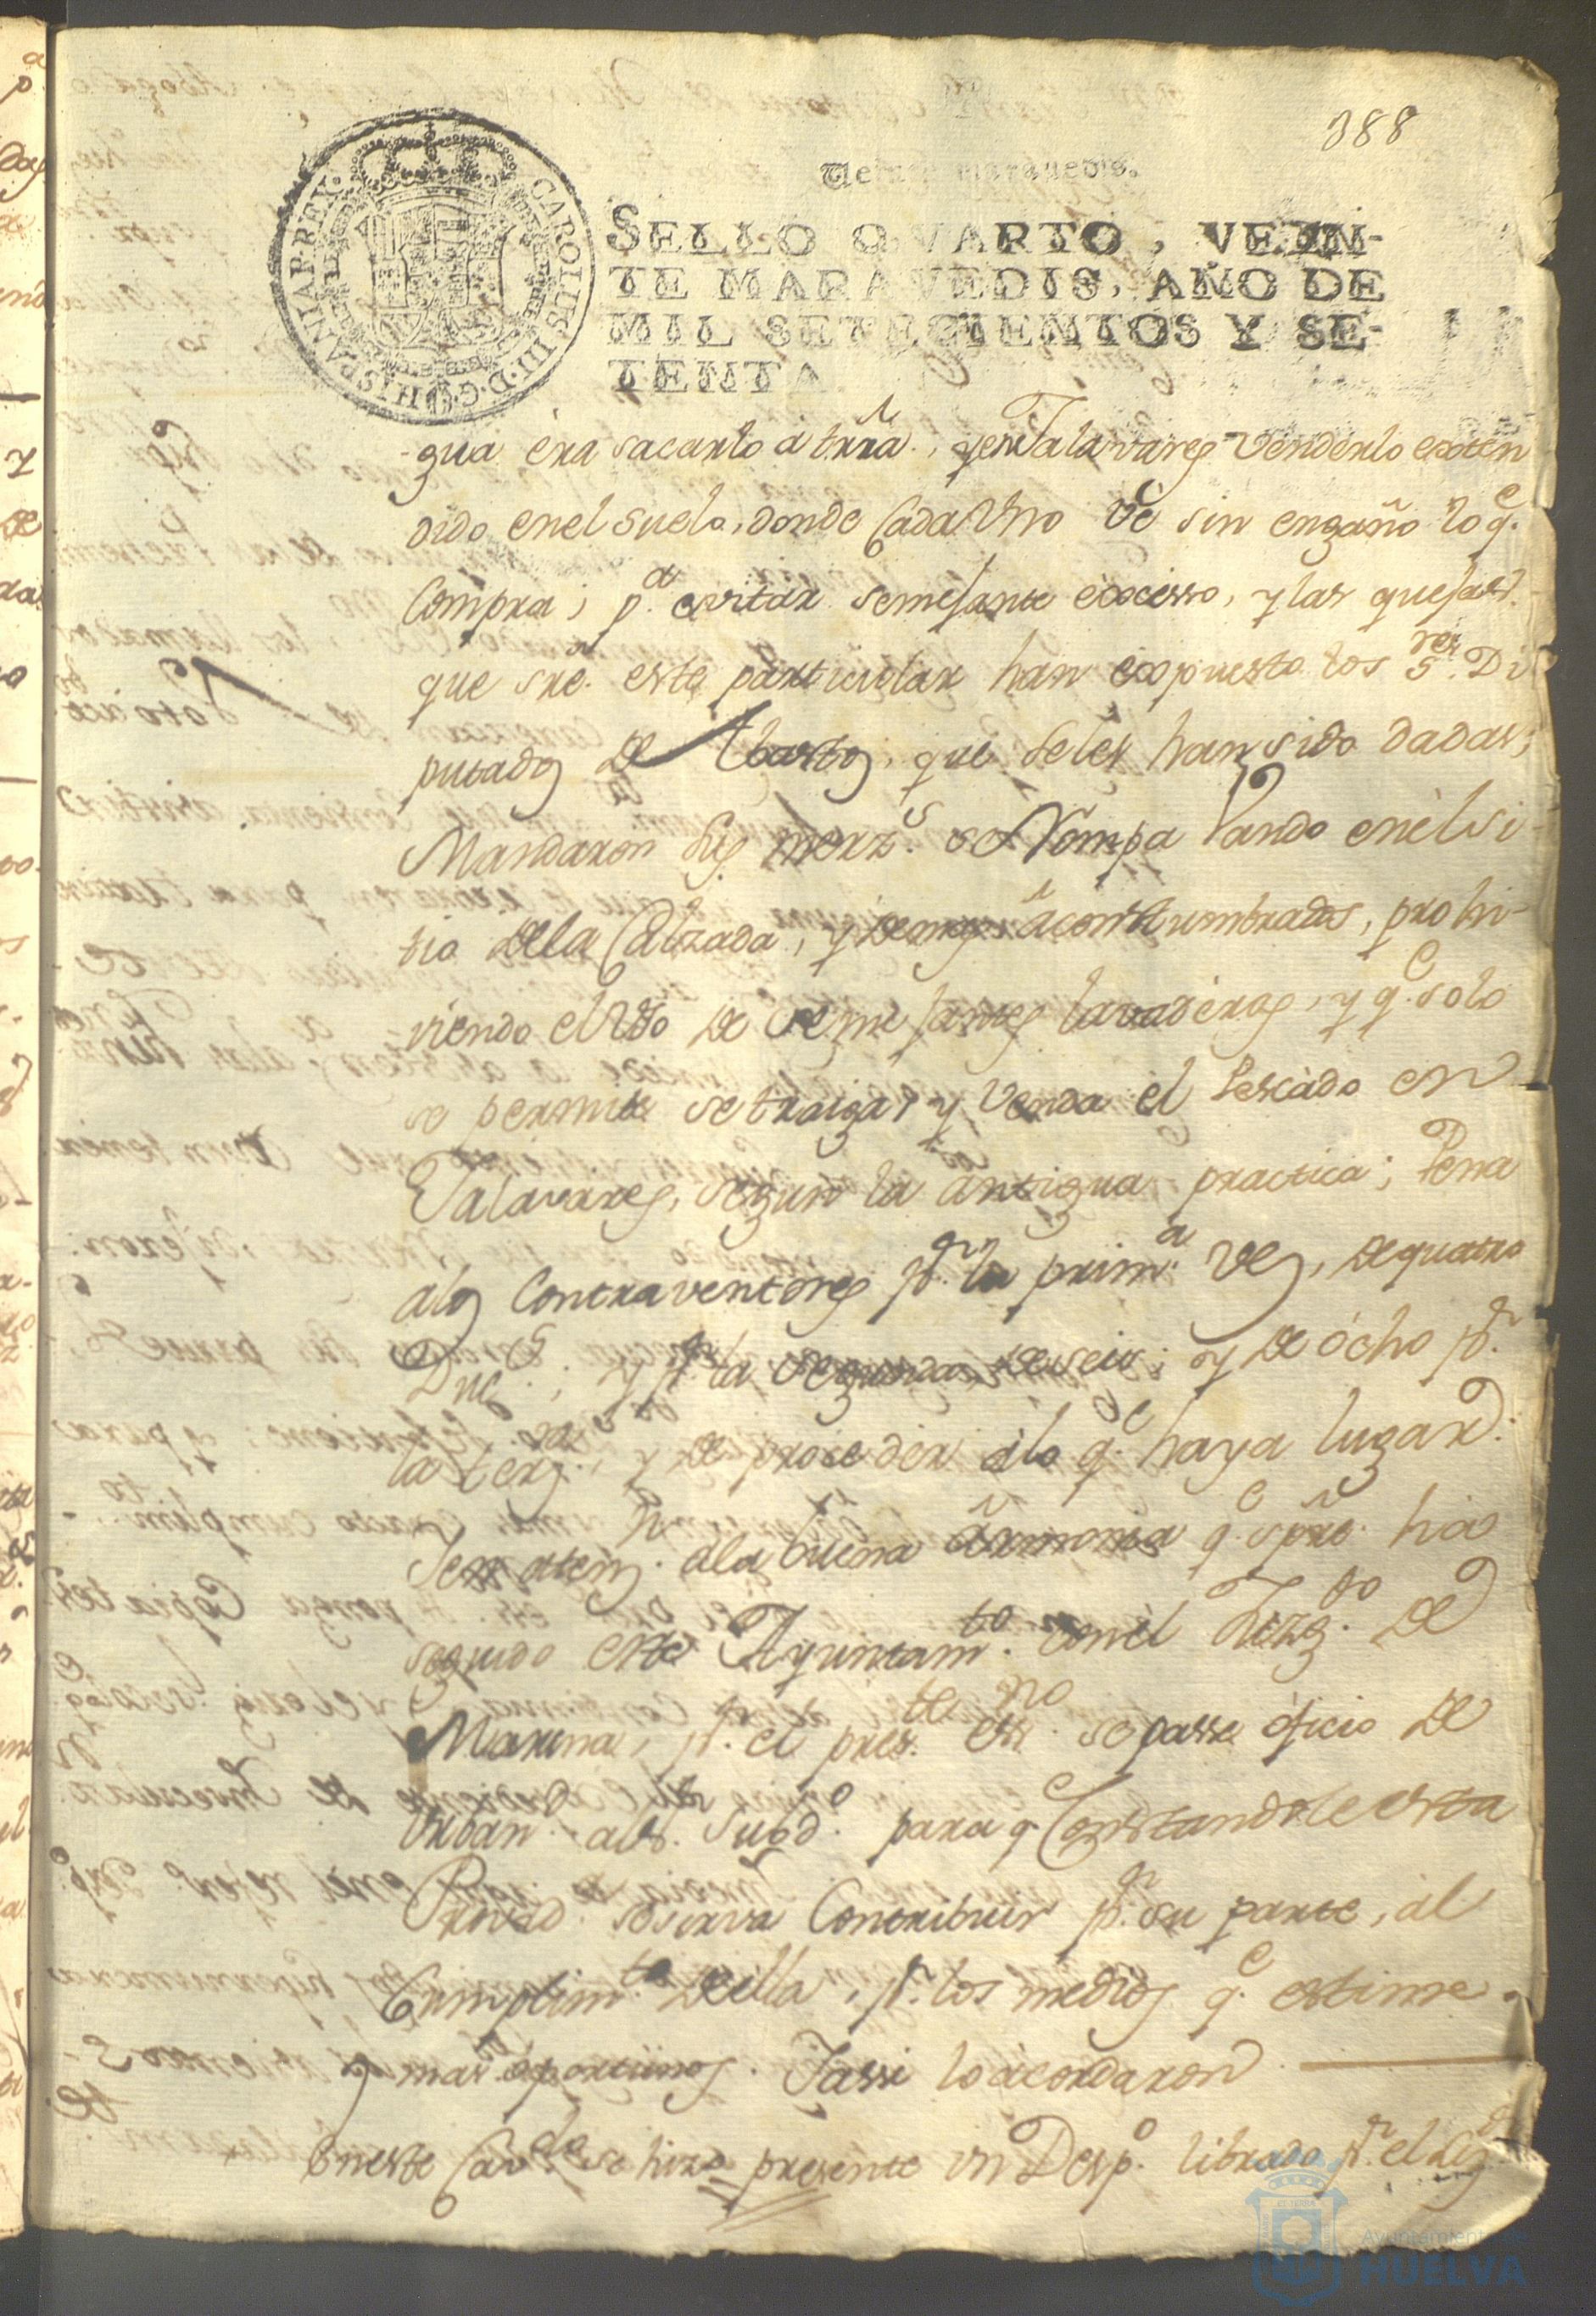 388
Veinte maravedis.
SELLO QVARTO, VEIN-
TE MARAVEDIS, AÑO DE
MIL SETECIENTOS Y SE-
TENTA
CAROLUS III D. G. HISPANIAR REX
gua éra sacarlo á trrã, y en Talavares Venderlo exten
dido en el suelo, donde Cada Uno Vé sin engaño lo q.e
Compra; p.a evitar semejante éxcesso, y las quejas
que sre. este particular han expuesto los S.res Di
putados de Abastos, que se les han sido dadas;
Mandaron sus merz.s se Rompa Vando en él si
tio de la Calzada, y demas acostumbrados, prohi-
viendo el Uso de semejantes lavaderos, y q.e solo
se permite se traiga, y Venda el Pescado en
Talavares, segun la antigua practica; Pena
alos Contraventores p.r la prim.a Vez, de quatro
Duc.s; y p.r la segunda de seis; y de ócho p.r
la terz.ra, y de proceder álo q.e haya lugar.
Y en atenz.n ala buena ármonia q.e spre. ha
seguido este Ayuntam.to con el Juzg.do de
Marina, p.r el pres.te es.no se passe óficio de
Urban.d al s.r Subd.o para q.e Constandole esta
Provid.a se sirva Contribuir p.r su parte, al
Cumplim.to de ella, p.r los medios q.e estime
mas oportunos. Y assi lo ácordaron.
En este Cav.do se hizo presente un Desp.o librado p.r el
Ayuntamiento de
HUELVA